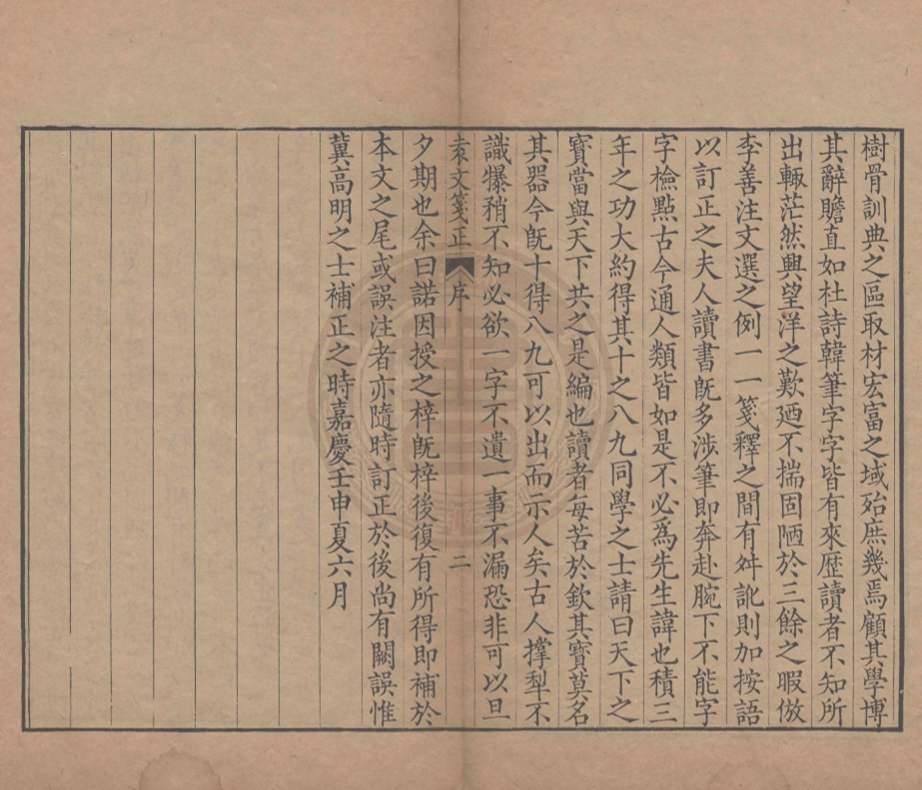 樹骨訓典之區取材宏富之域殆庶幾焉顧其學博
其辭贍直如杜詩韓筆字字皆有來歷讀者不知所
出輙茫然興望洋之歎廼不揣固陋於三餘之暇倣
李善注文選之例一一箋釋之間有舛訛則加按語
以訂正之夫人讀書旣多涉筆即奔赴腕下不能字
字檢點古今通人類皆如是不必爲先生諱也積三
年之功大約得其十之八九同學之士請曰天下之
寶當與天下共之是編也讀者每苦於欽其寶莫名
其器今旣十得八九可以出而示人矣古人撑犁不
識犦矟不知必欲一字不遺一事不漏恐非可以旦
袁文箋正 序 二
夕期也余曰諾因授之梓旣梓後復有所得即補於
本文之尾或誤注者亦隨時訂正於後尚有闕誤惟
冀高明之士補正之時嘉慶壬申夏六月